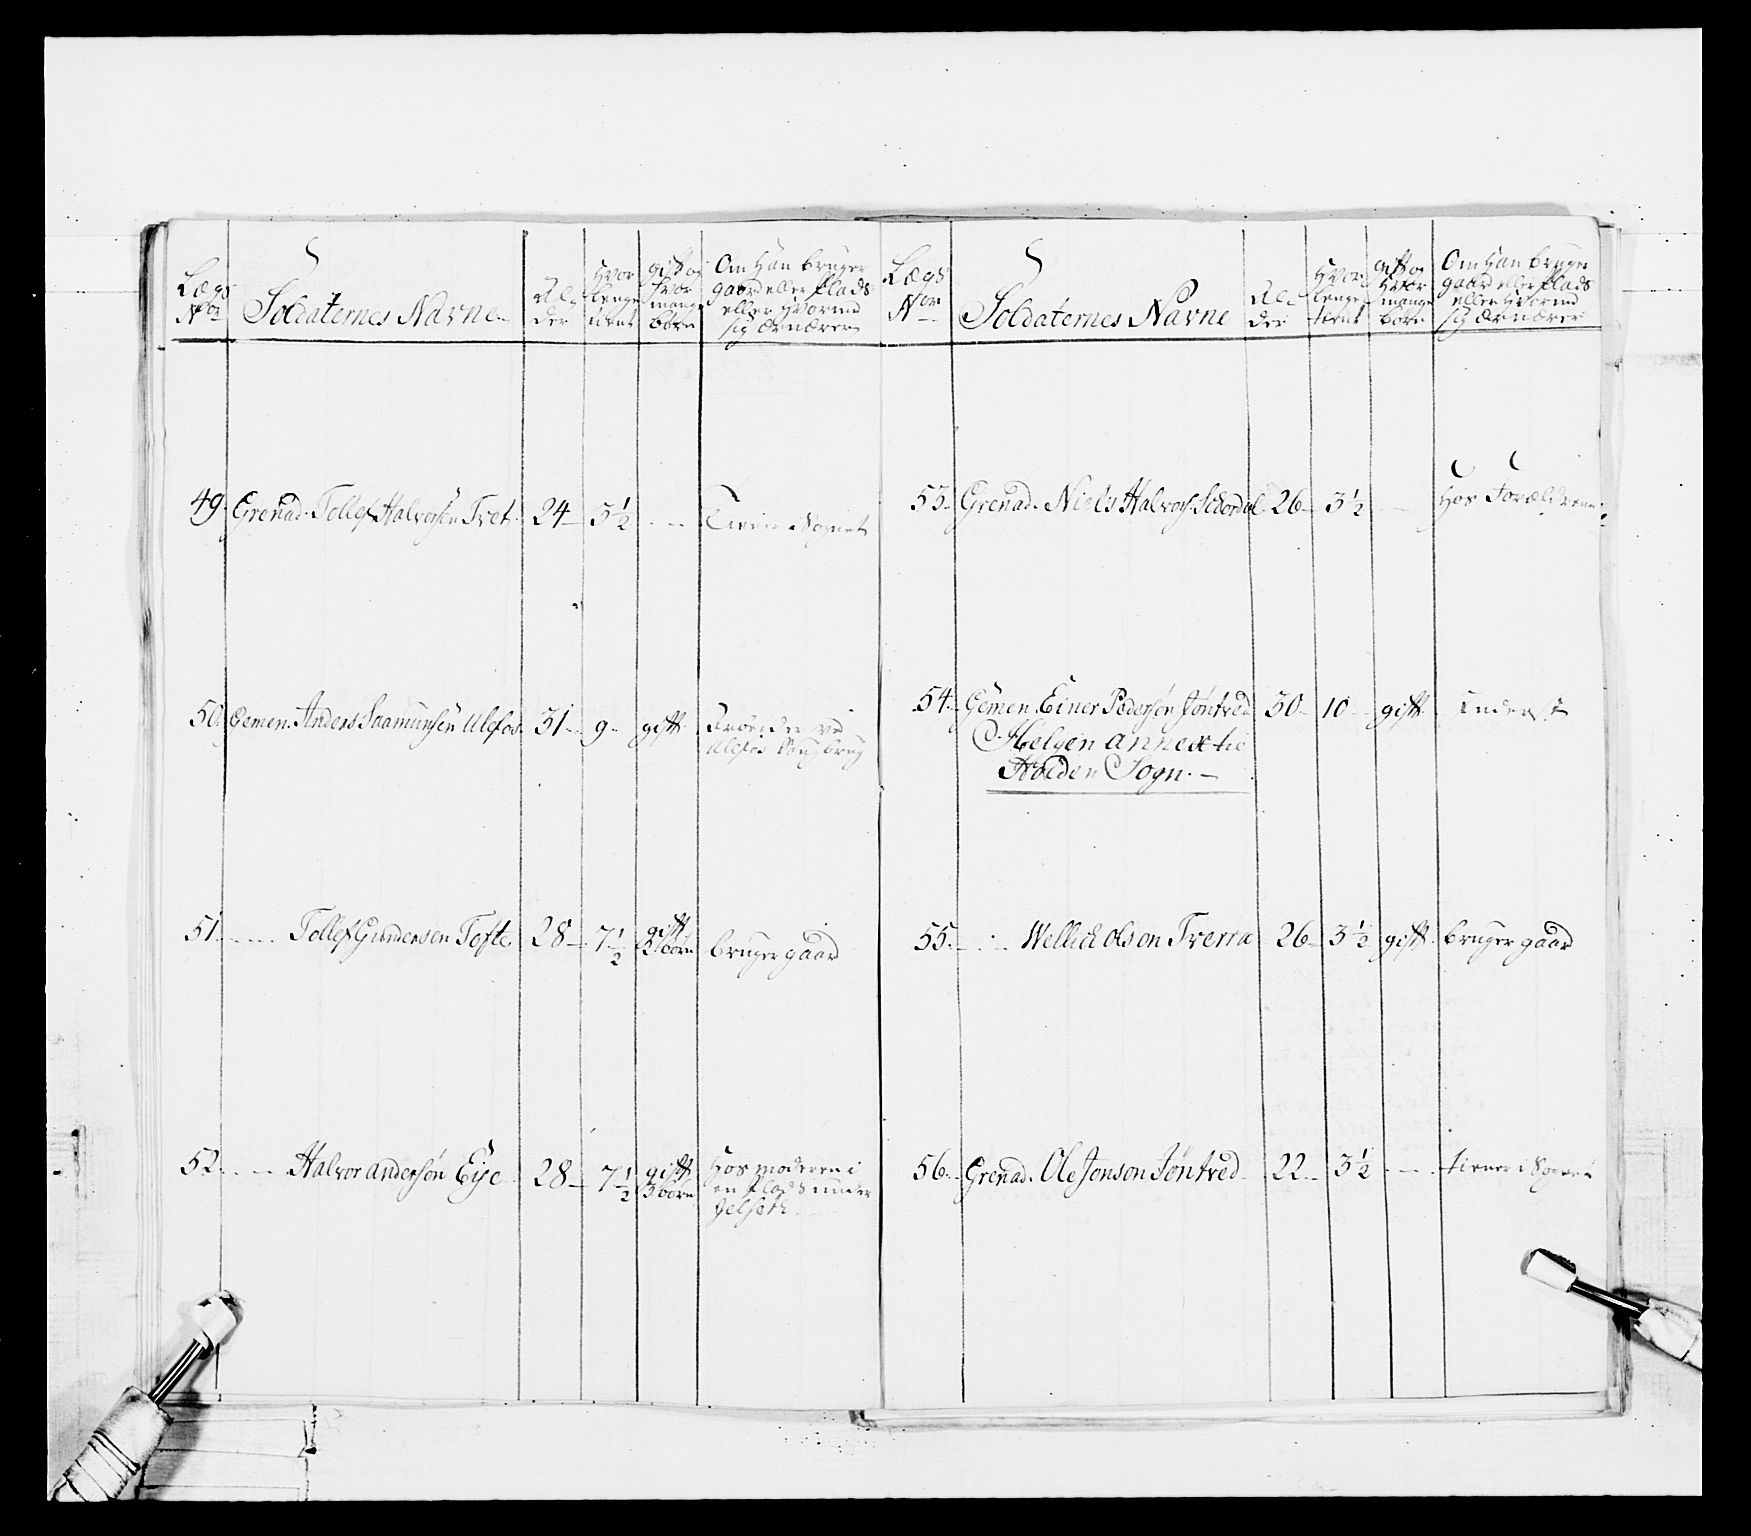 Lægs
Nor
Soldaternes Navne
Al-
der
Hvor
lenge
tient
gift og
hvor
mange
børn
Om Han bruger
gaard eller Plads
eller Hvormed
sig Ærnærer
49. Grenad. Tollef Halvorsen Tvet. 24 3½ - - Tiener i Sognet
50. Gemen. Anders Saamunsen Ulefos 31 9 gift
Ulefos Saugbrug
51. - - Tollef Gundersen Tofte 28 7½ gift
børn
bruger gaard
52. - - Halvor andersøn Eye 28 7½ gift
3 børn
Hos moderen i
en Plads under
Lægs
Nor
Soldaternes Navne
Al-
der
Hvor
lenge
tient
gift og
Hvor
mange
børn
Om Han bruger
gaard eller Plads
eller Hvormed
sig Ærnærer
53. Grenad. Niels Halvors. 26 3½ - - Hos Forældrene
54. Gemen. Einer Pedersøn Jøntved 30 10 gift Inderst
Helgen annex til
Holden Sogn.
55. - - Olson Tverra 26 3½ gift bruger gaard
56. Grenad. Ole Jonson Jøntved 22 3½ - - tiener i Sognet